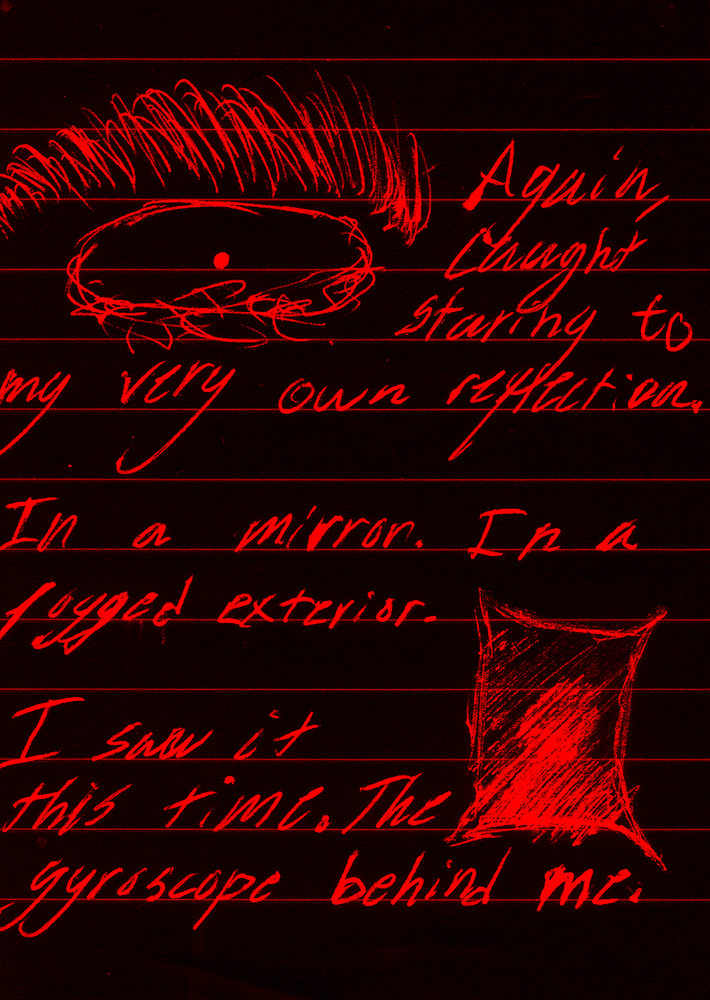 Again,
Caught
staring to
my very own reflection.
In a mirror. In a
fogged exterior.
I saw it
this time. The
gyroscope behind me.